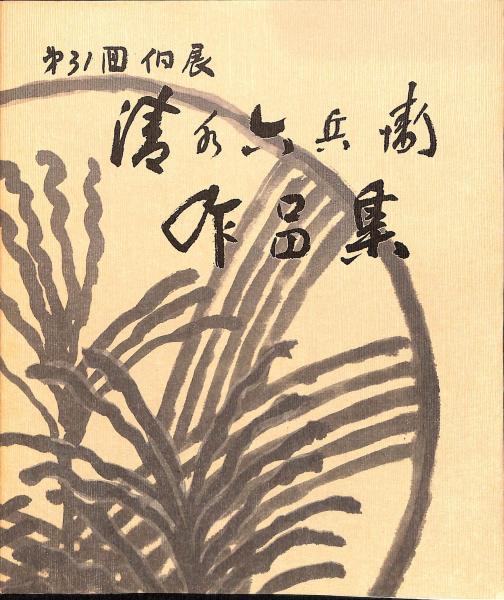 第31回伯展
清水六兵衛
作品集